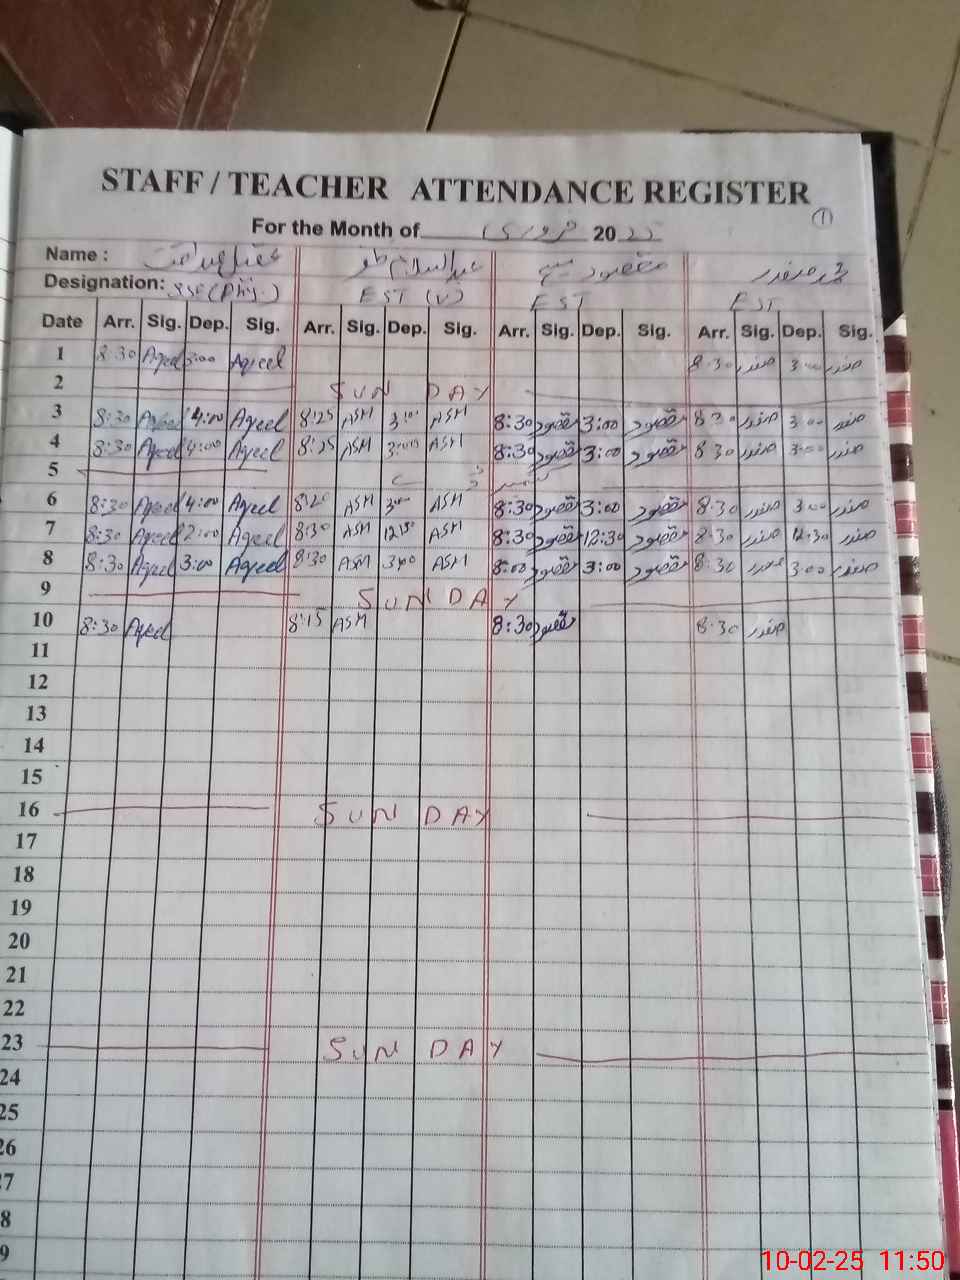 STAFF / TEACHER ATTENDANCE REGISTER
1
For the Month of فروری 2025
Name : عبدالسلام مقصود محمد صفدر
Designation: SSE (Phy.) EST (V) EST EST
Date Arr. Sig. Dep. Sig. Arr. Sig. Dep. Sig. Arr. Sig. Dep. Sig. Arr. Sig. Dep. Sig.
1 8:30 Aqeel 3:00 Aqeel 8:30 صفدر 3:00 صفدر
2 SUNDAY
3 8:30 Aqeel 4:00 Aqeel 8:25 ASM 3:00 ASM 8:30 مقصود 3:00 مقصود 8:30 صفدر 3:00 صفدر
4 8:30 Aqeel 4:00 Aqeel 8:25 ASM 3:00 ASM 8:30 مقصود 3:00 مقصود 8:30 صفدر 3:00 صفدر
5
6 8:30 Aqeel 4:00 Aqeel 8:20 ASM 3:00 ASM 8:30 مقصود 3:00 مقصود 8:30 صفدر 3:00 صفدر
7 8:30 Aqeel 2:00 Aqeel 8:30 ASM ASM 8:30 مقصود 12:30 مقصود 8:30 صفدر 12:30 صفدر
8 8:30 Aqeel 3:00 Aqeel 8:30 ASM 3:00 ASM 8:00 مقصود 3:00 مقصود 8:30 صفدر 3:00 صفدر
9 SUNDAY
10 8:30 Aqeel 8:15 ASM 8:30 مقصود 8:30 صفدر
11
12
13
14
15
16 SUNDAY
17
18
19
20
21
22
23 SUNDAY
24
25
26
7
8
9
10-02-25 11:50